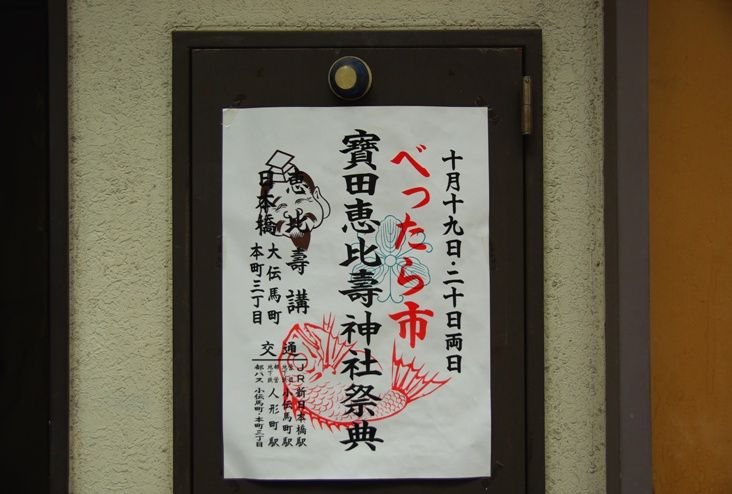 十月十九日・二十日両日
べったら市
寶田恵比壽神社祭典
恵比壽講
日本橋
大伝馬町
本町三丁目
交通
JR新日本橋駅
営団地下鉄 小伝馬町駅
都営地下鉄 人形町駅
都バス 小伝馬町・本町三丁目